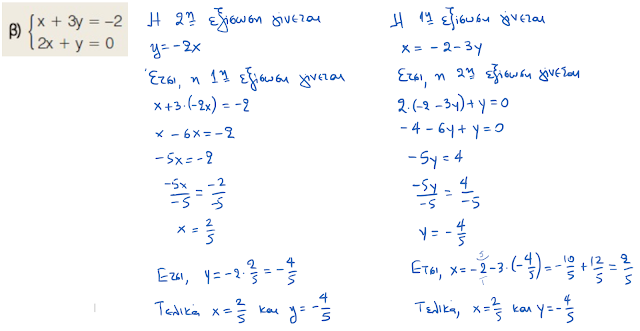 β) { x + 3y = −2
2x + y = 0
Η 2η εξίσωση γίνεται
y = -2x
Έτσι, η 1η εξίσωση γίνεται
x + 3·(-2x) = -2
x - 6x = -2
-5x = -2
-5x/-5 = -2/-5
x = 2/5
Ετσι, y = -2·2/5 = -4/5
Τελικά x = 2/5 και y = -4/5
Η 1η εξίσωση γίνεται
x = -2-3y
Ετσι, η 2η εξίσωση γίνεται
2·(-2-3y)+y=0
-4-6y+y=0
-5y=4
-5y/-5 = 4/-5
y = -4/5
Ετσι, x = -2-3·(-4/5) = -10/5 + 12/5 = 2/5
Τελικά, x = 2/5 και y = -4/5